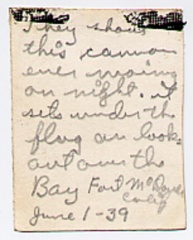 They shoot
this cannon
ever
on night. it
sets under the
flag an looks
out over the
Bay Fort McDowell
Calif
June 1-39